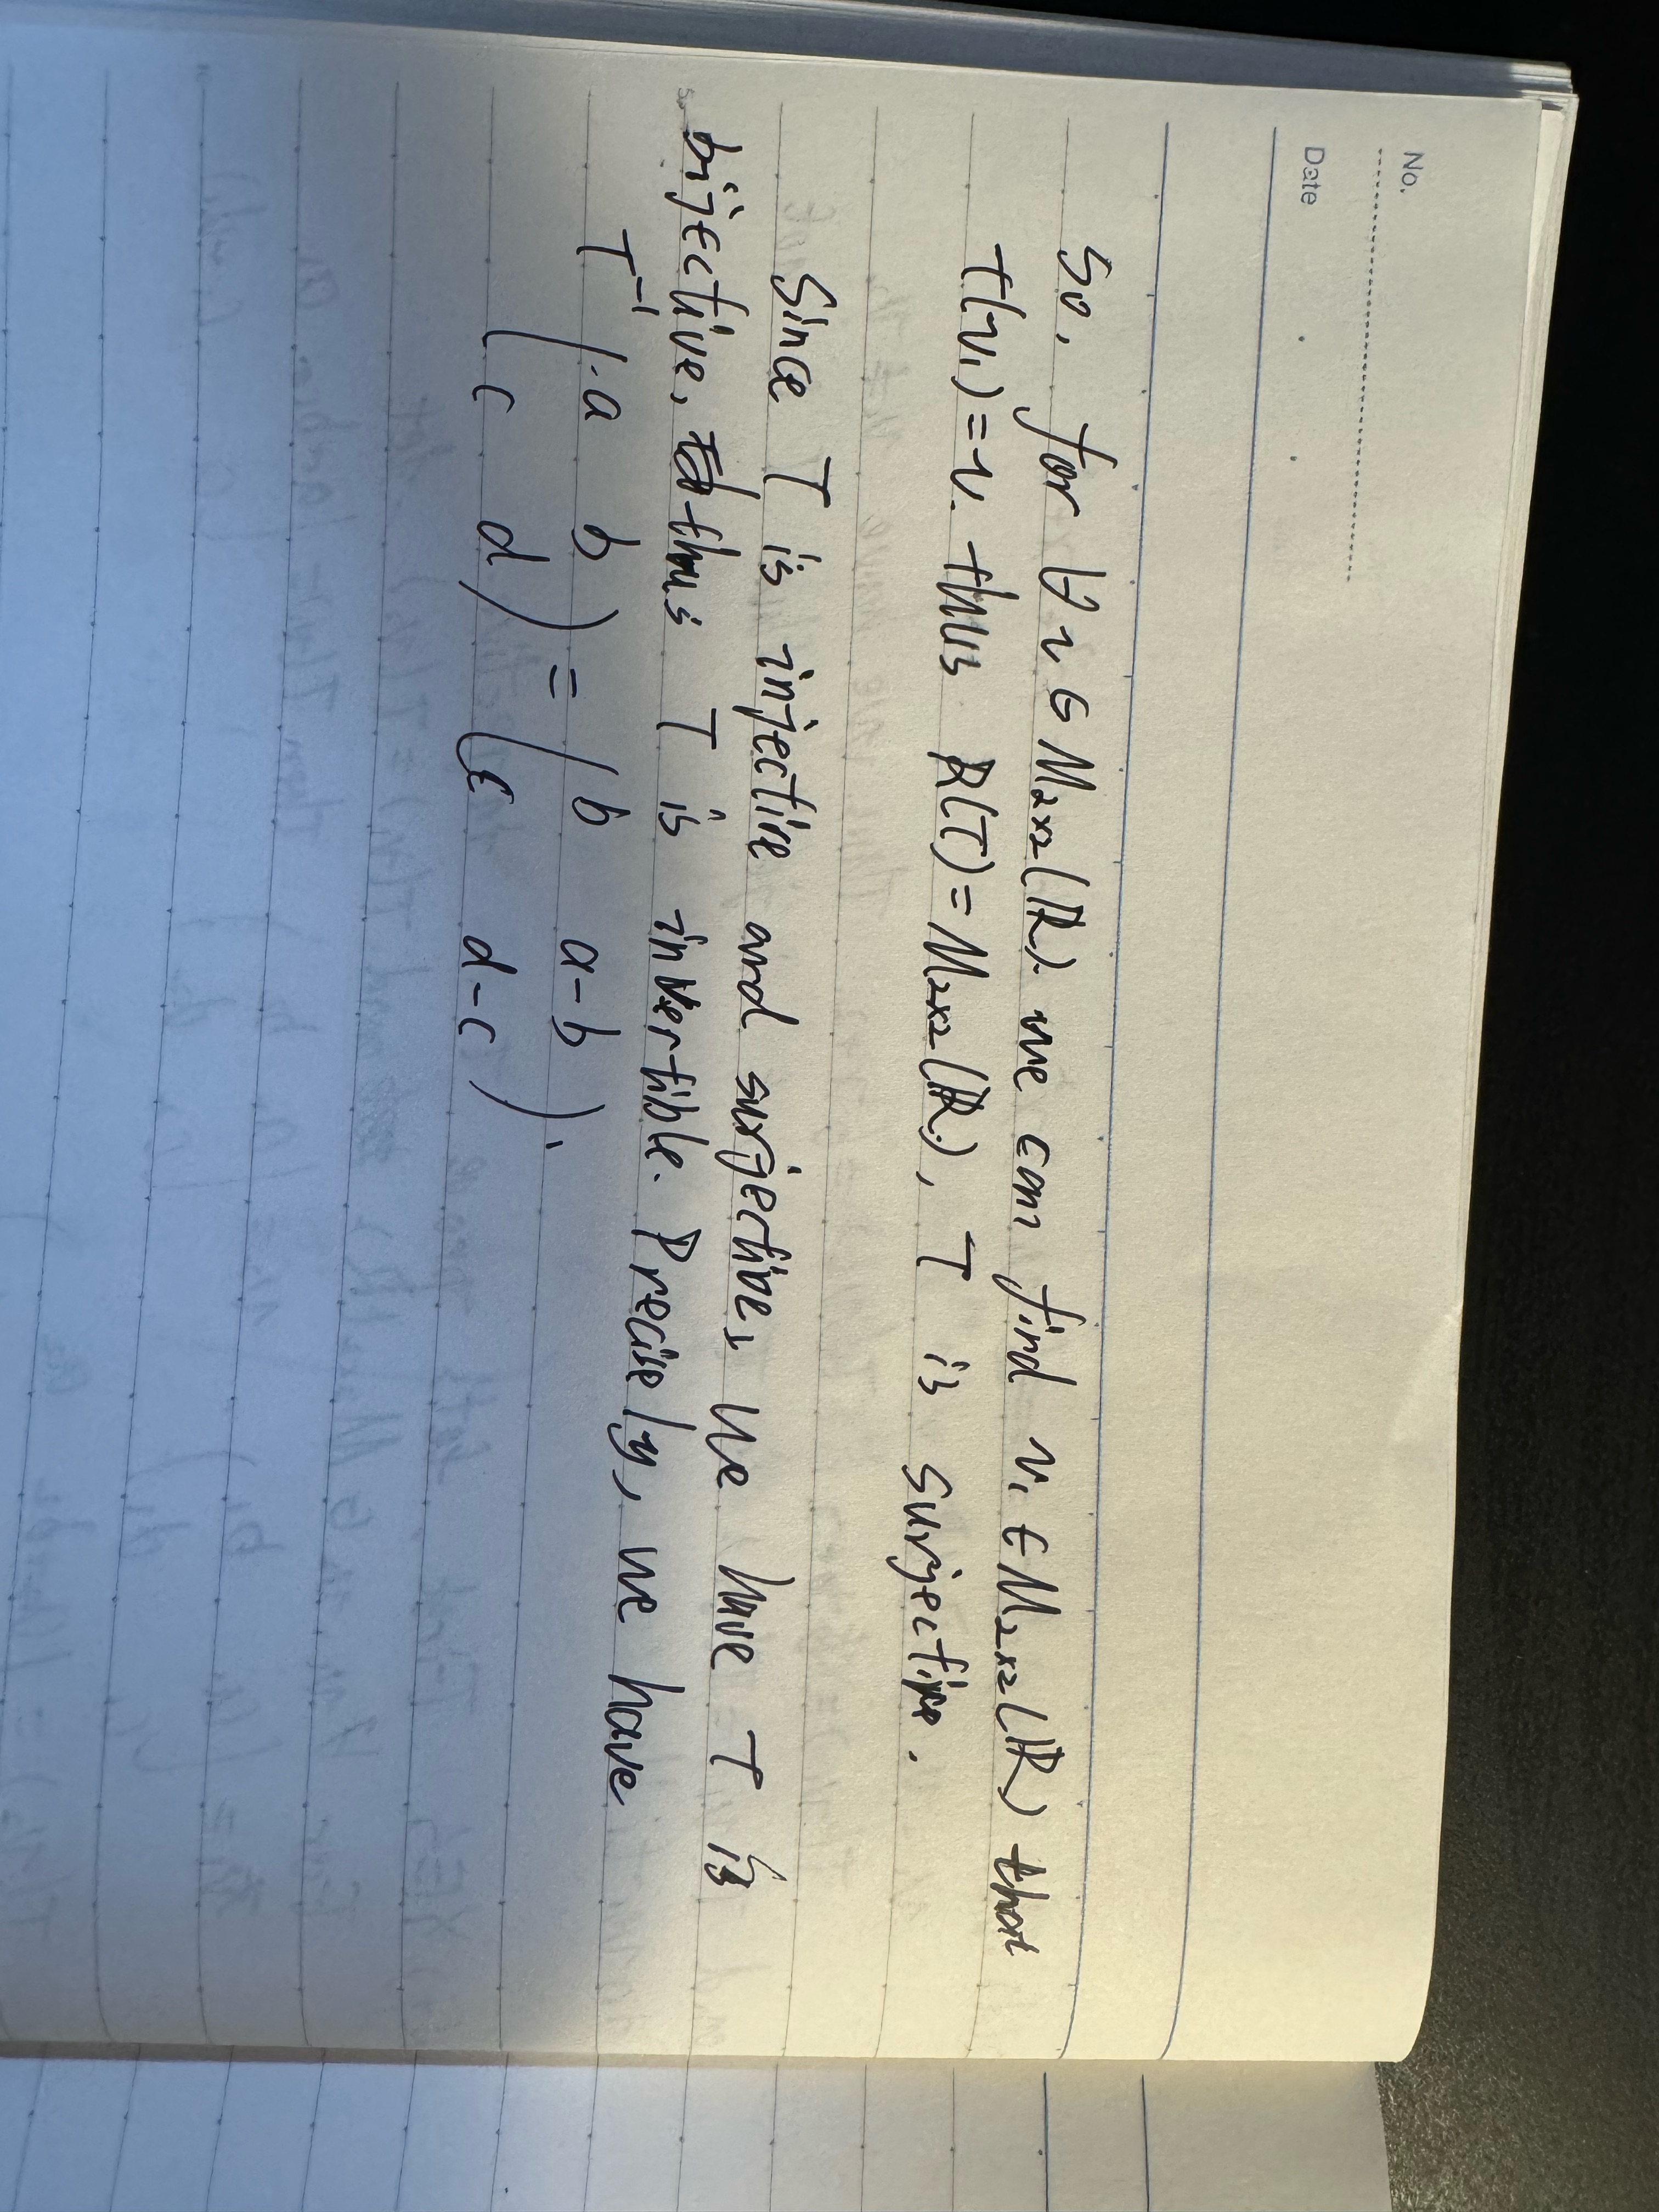 No.
Date
So, for ∀ v ∈ M₂ₓ₂(ℝ) we can find v₁ ∈ M₂ₓ₂(ℝ) that
T(v₁)=v. thus R(T)=M₂ₓ₂(ℝ), T is surjective.
Since T is injective and surjective, we have T is
bijective, thus T is invertible. Precisely, we have
T⁻¹ ( a b
c d ) = ( b a-b
c d-c ).